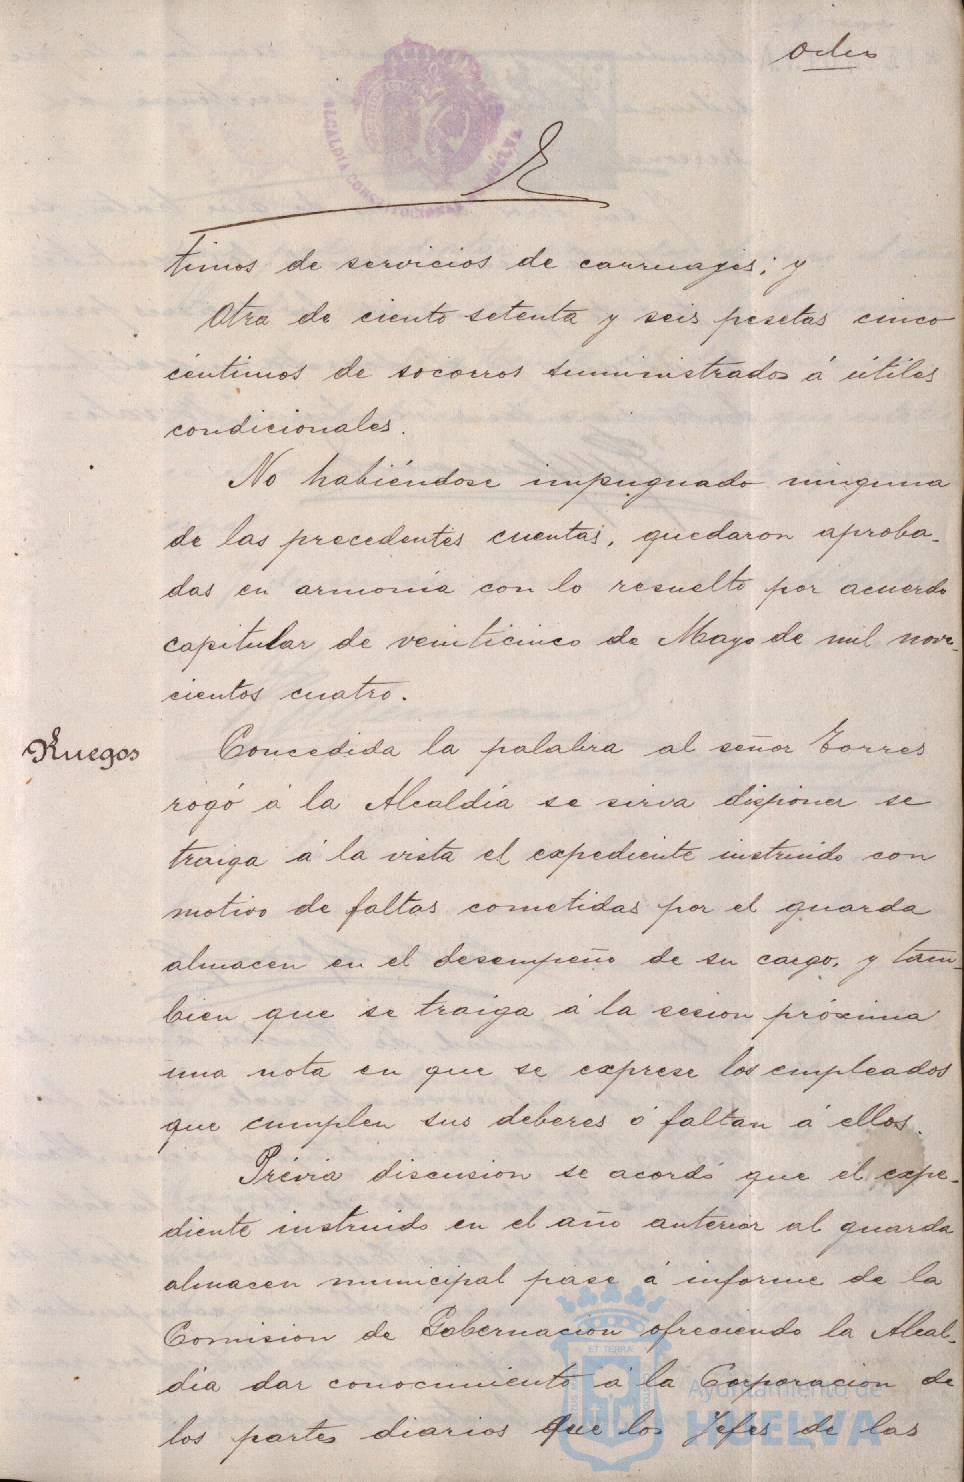 ocho
ALCALDIA CONSTITUCIONAL HUELVA
timos de servicios de carruajes; y
Otra de ciento setenta y seis pesetas cinco
céntimos de socorros suministrados á útiles
condicionales.
No habiéndose impugnado ninguna
de las precedentes cuentas, quedaron aproba-
das en armonía con lo resuelto por acuerdo
capitular de veinticinco de Mayo de mil nove-
cientos cuatro.
Ruegos
Concedida la palabra al señor Torres
rogó á la Alcaldía se sirva disponer se
traiga á la vista el expediente instruido con
motivo de faltas cometidas por el guarda
almacen en el desempeño de su cargo, y tam-
bien que se traiga á la sesion próxima
una nota en que se exprese los empleados
que cumplen sus deberes ó faltan á ellos.
Prévia discusion se acordó que el expe-
diente instruido en el año anterior al guarda
almacen municipal pase á informe de la
Comision de Gobernacion ofreciendo la Alcal-
día dar conocimiento á la Corporacion de
los partes diarios que los Jefes de las
ET TERRÆ
Ayuntamiento de
HUELVA